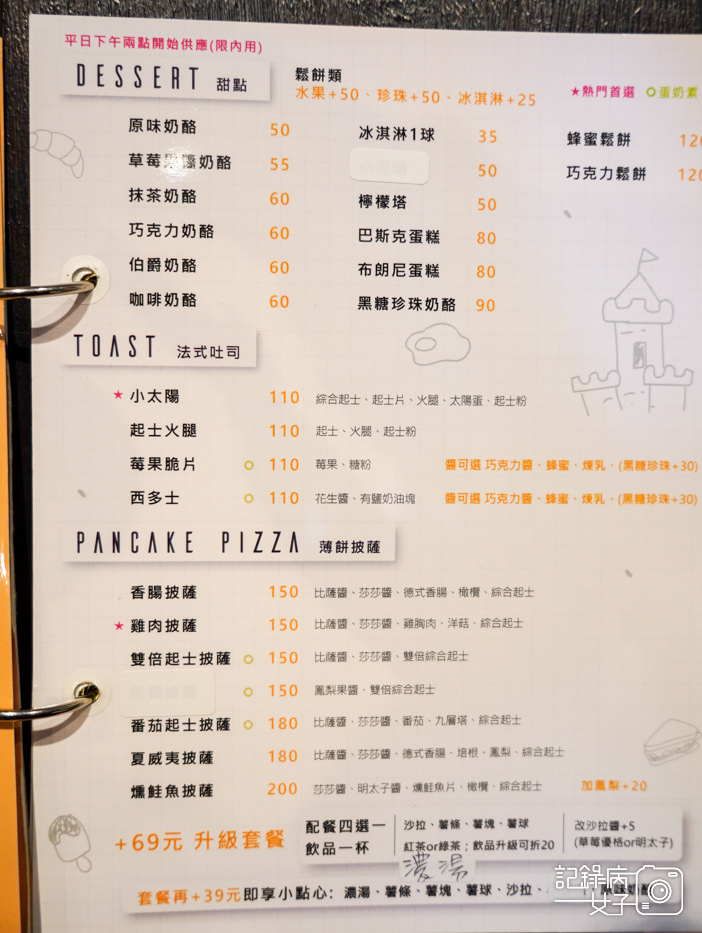 平日下午兩點開始供應(限內用)
DESSERT 甜點
鬆餅類
水果+50、珍珠+50、冰淇淋+25
★熱門首選 蛋奶素
原味奶酪 50
草莓果醬奶酪 55
抹茶奶酪 60
巧克力奶酪 60
伯爵奶酪 60
咖啡奶酪 60
冰淇淋1球 35
50
檸檬塔 50
巴斯克蛋糕 80
布朗尼蛋糕 80
黑糖珍珠奶酪 90
蜂蜜鬆餅 120
巧克力鬆餅 120
TOAST 法式吐司
★ 小太陽 110 綜合起士、起士片、火腿、太陽蛋、起士粉
起士火腿 110 起士、火腿、起士粉
莓果脆片 110 莓果、糖粉 醬可選 巧克力醬、蜂蜜、煉乳、(黑糖珍珠+30)
西多士 110 花生醬、有鹽奶油塊 醬可選 巧克力醬、蜂蜜、煉乳、(黑糖珍珠+30)
PANCAKE PIZZA 薄餅披薩
香腸披薩 150 比薩醬、莎莎醬、德式香腸、橄欖、綜合起士
★ 雞肉披薩 150 比薩醬、莎莎醬、雞胸肉、洋菇、綜合起士
雙倍起士披薩 150 比薩醬、莎莎醬、雙倍綜合起士
150 鳳梨果醬、雙倍綜合起士
番茄起士披薩 180 比薩醬、莎莎醬、番茄、九層塔、綜合起士
夏威夷披薩 180 比薩醬、莎莎醬、德式香腸、培根、鳳梨、綜合起士
燻鮭魚披薩 200 莎莎醬、明太子醬、燻鮭魚片、橄欖、綜合起士 加鳳梨+20
+69元 升級套餐
配餐四選一 沙拉、薯條、薯塊、薯球
飲品一杯 紅茶or綠茶；飲品升級可折20
濃湯
改沙拉醬+5
(草莓優格or明太子)
套餐再+39元即享小點心：濃湯、薯條、薯塊、薯球、沙拉、
記錄病女子